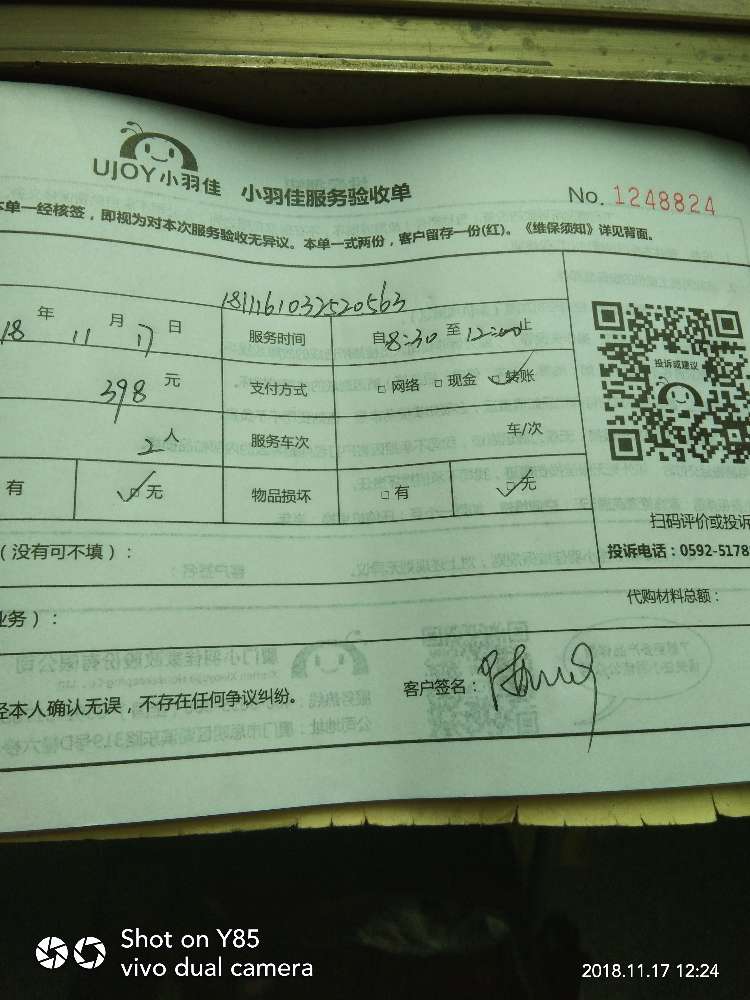 UJOY小羽佳 小羽佳服务验收单 No. 1248824
本单一经核签，即视为对本次服务验收无异议。本单一式两份，客户留存一份(红)。《维保须知》详见背面。
1811161032520563
18年11月17日 服务时间 自8:30至12:00止
398元 支付方式 □网络 □现金 □转账
投诉或建议
2人 服务车次 车/次
有 □无 物品损坏 □有 □无
扫码评价或投诉
（没有可不填）： 投诉电话：0592-5178
业务）： 代购材料总额：
经本人确认无误，不存在任何争议纠纷。 客户签名：
Shot on Y85
vivo dual camera
2018.11.17 12:24